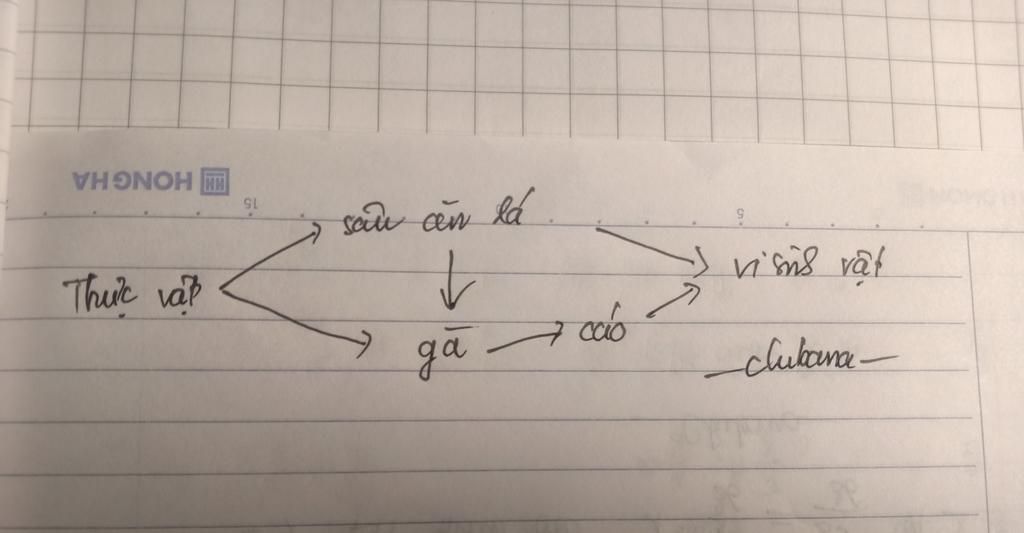 HONG HA
15
5
sâu ăn lá
vi sinh vật
Thực vật
gà
cáo
clubana